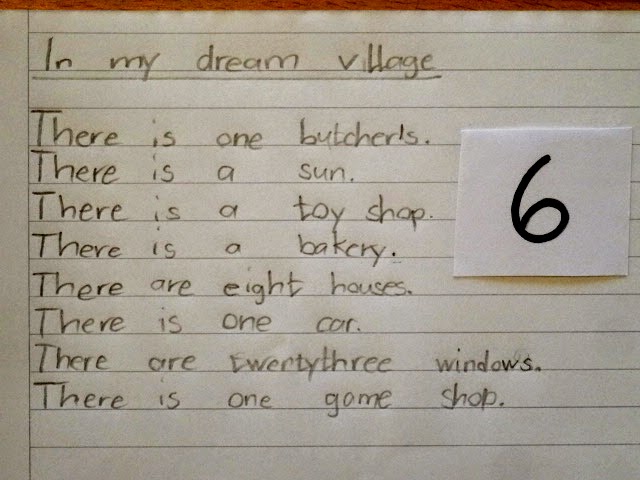 In my dream village
There is one butcher's.
There is a sun.
There is a toy shop.
There is a bakery.
6
There are eight houses.
There is one car.
There are twentythree windows.
There is one game shop.